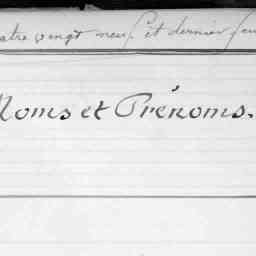 atre vingt neuf et dernier feu
Noms et Prénoms.